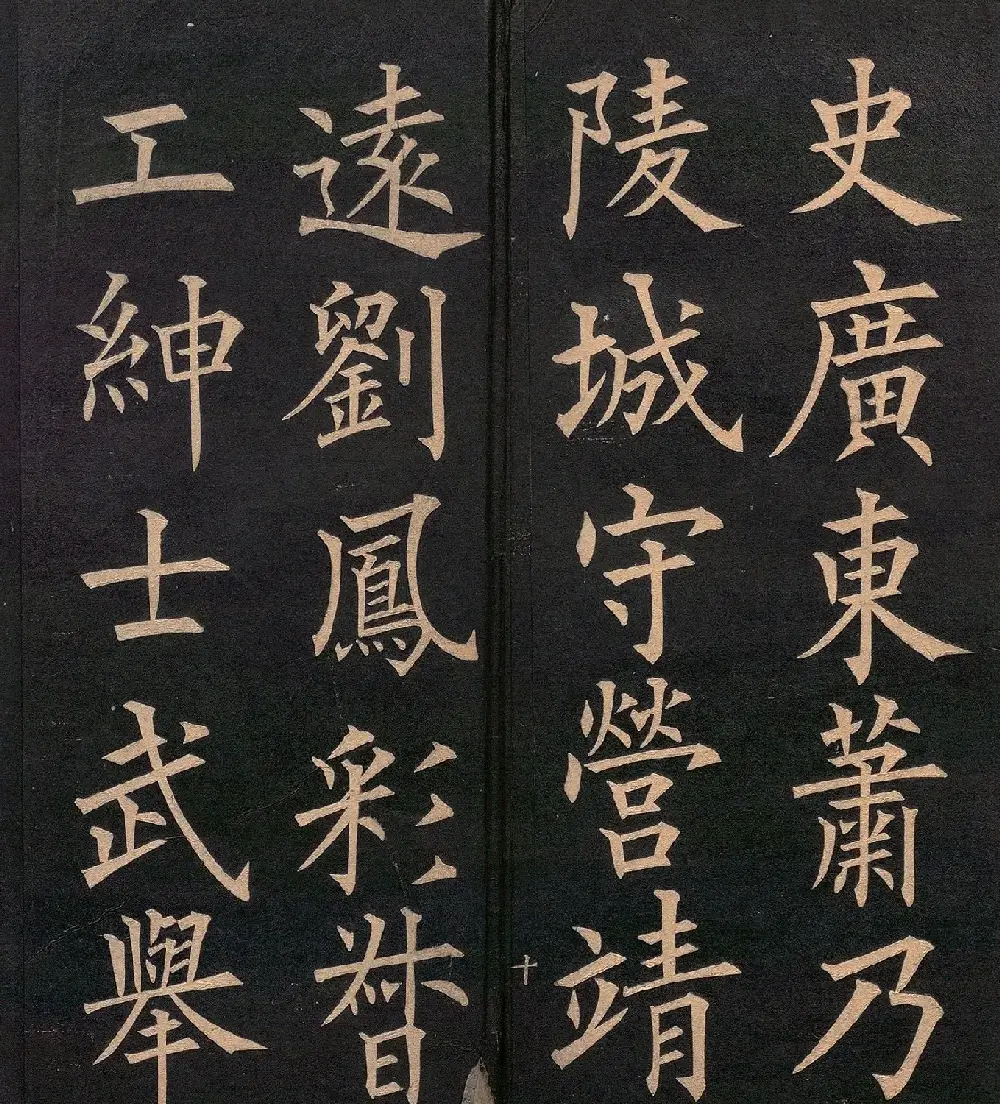 史廣東蕭乃
陵城守營靖
遠劉鳳彩督
工紳士武舉
十